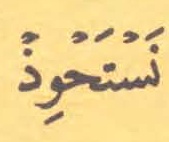 نَسْتَحْوِذْ